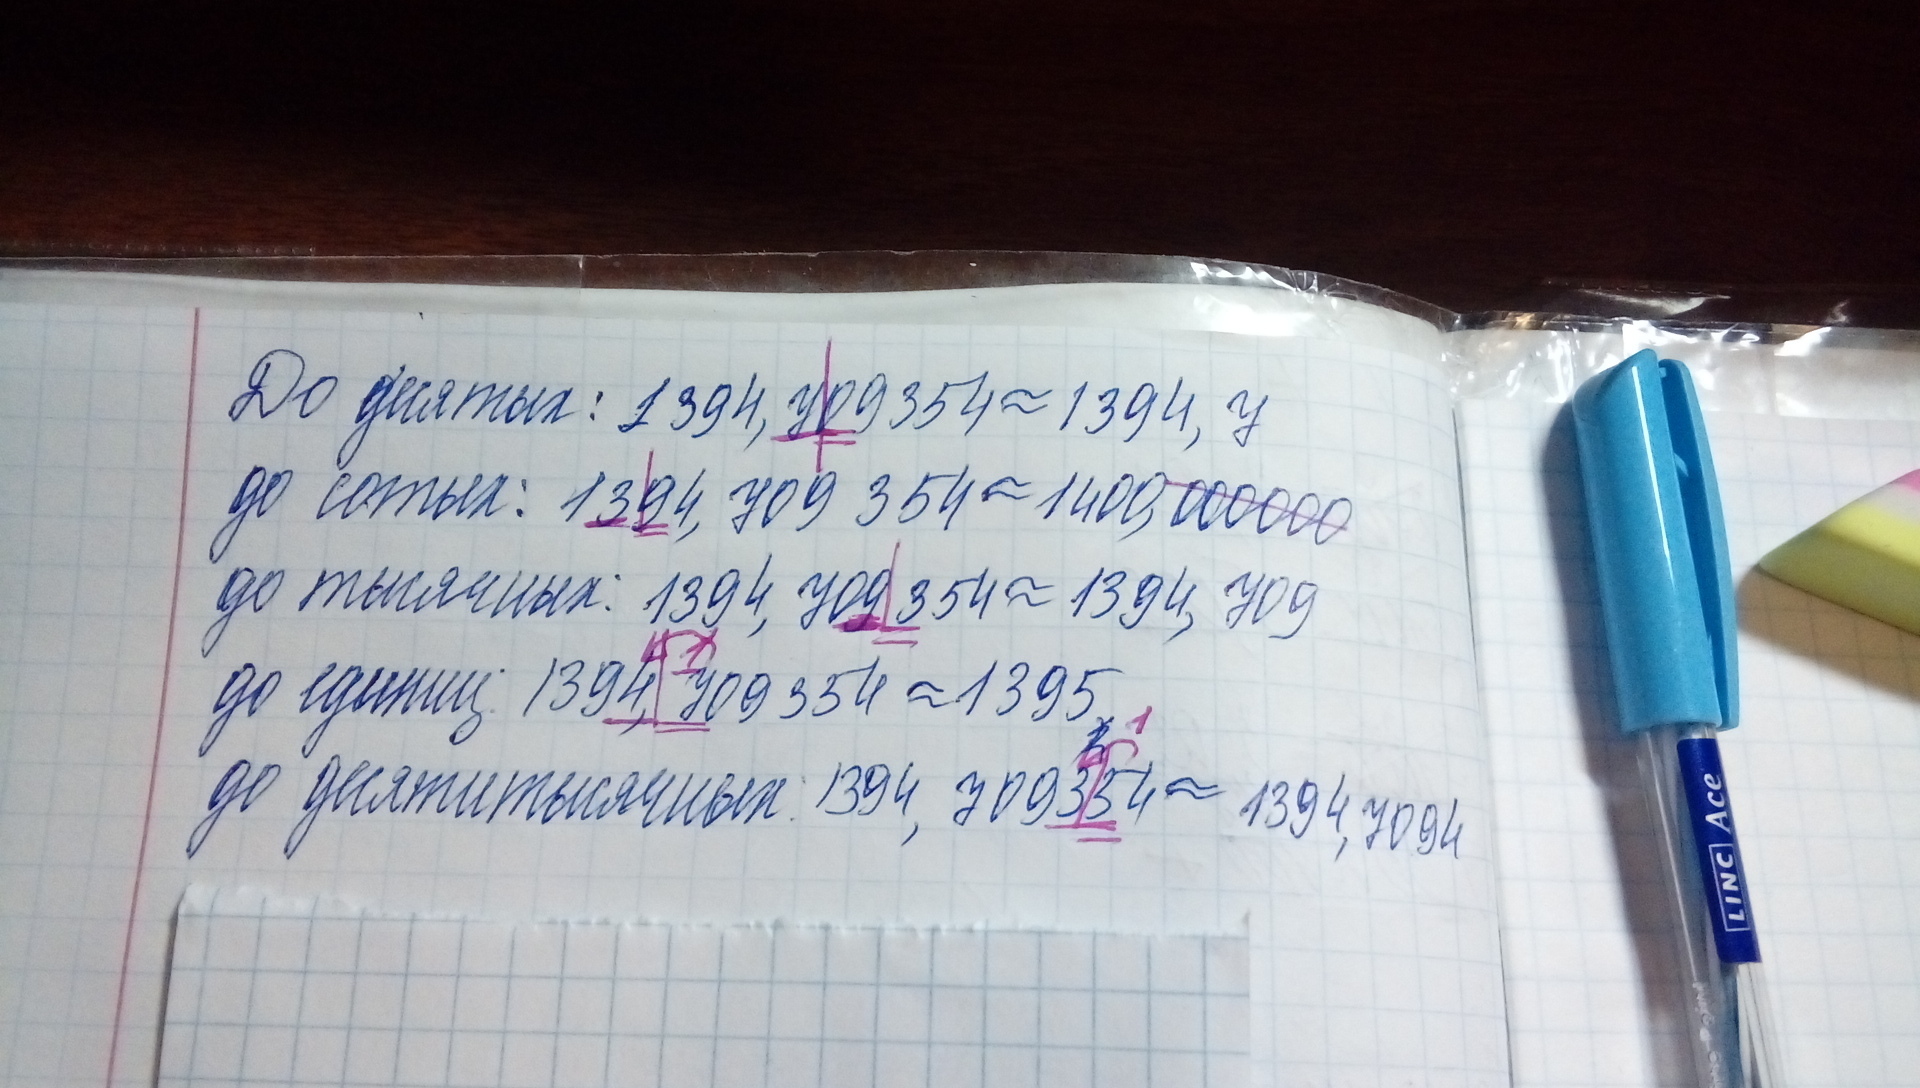 До десятых: 1394,709354≈1394,7
до сотых: 1394,709354≈1400,000000
до тысячных: 1394,709354≈1394,709
до единиц: 1394,709354≈1395
до десятитысячных: 1394,709354≈1394,7094
LINC Ace